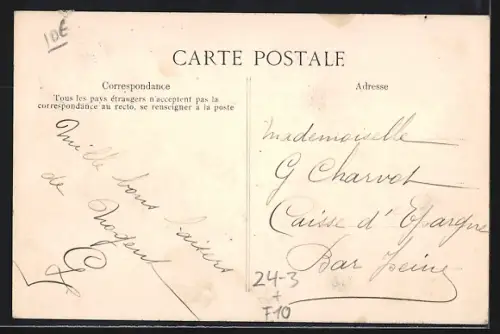 10E
CARTE POSTALE
Correspondance
Tous les pays étrangers n'acceptent pas la
correspondance au recto, se renseigner à la poste
Mille bons baisers
de Nogent
G
Adresse
Mademoiselle
G Charvot
Caisse d'Epargne
Bar s/Seine
24-3
+
F10